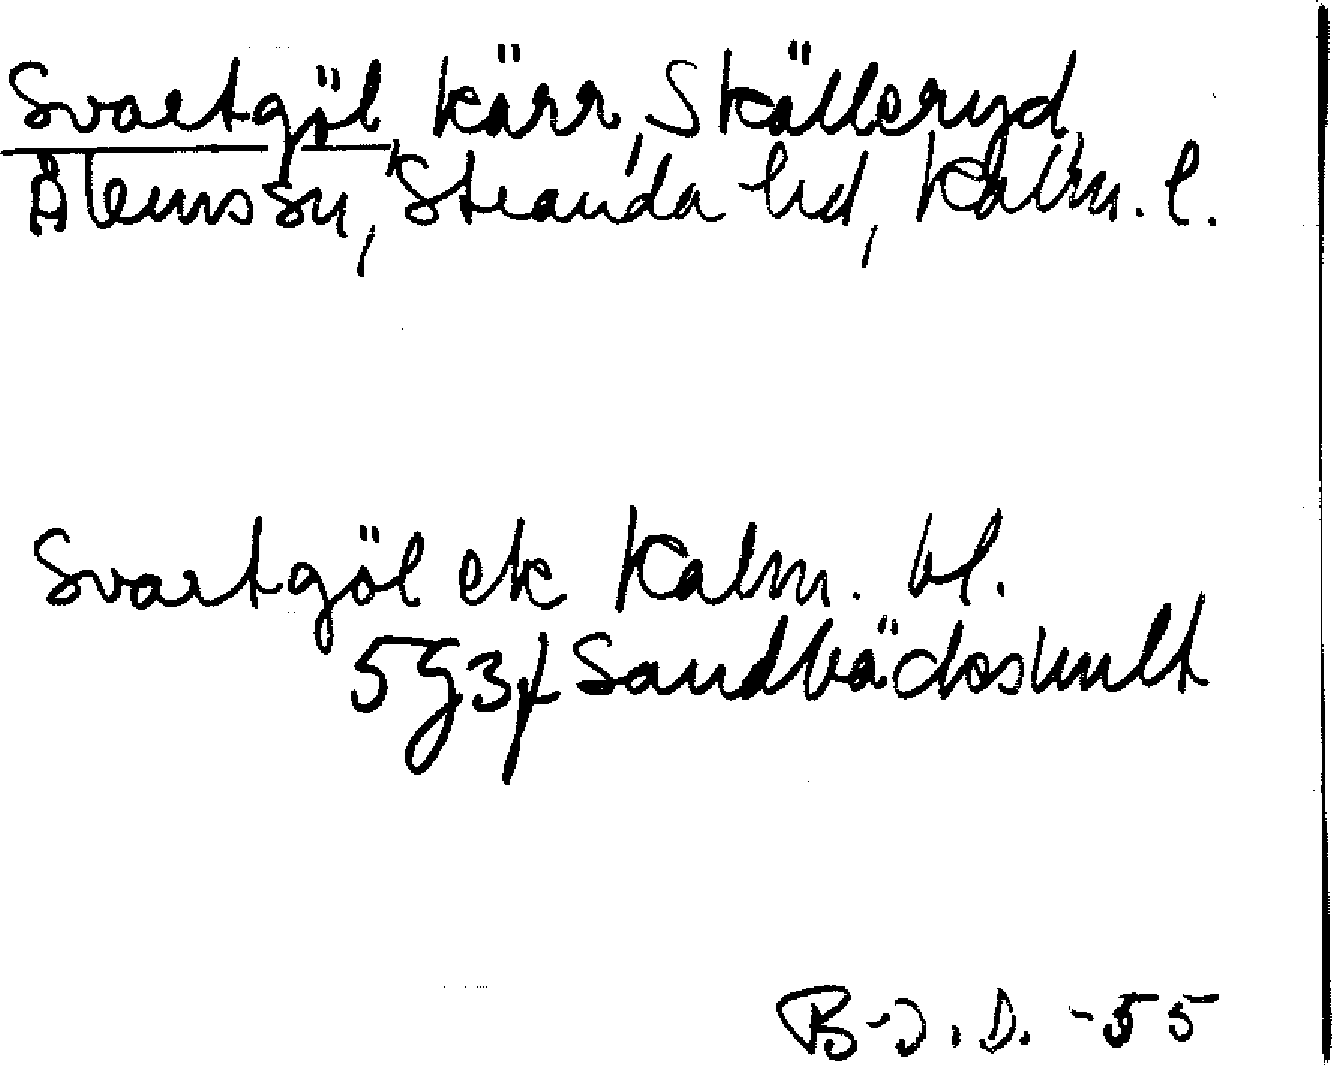 Svartgöl, kärr, Skälleryd,
Ålems sn, Stranda hd, Kalm. l.
Svartgöl ek Kalm. bl.
5G3f Sandbäckshult
B-J. D. -55